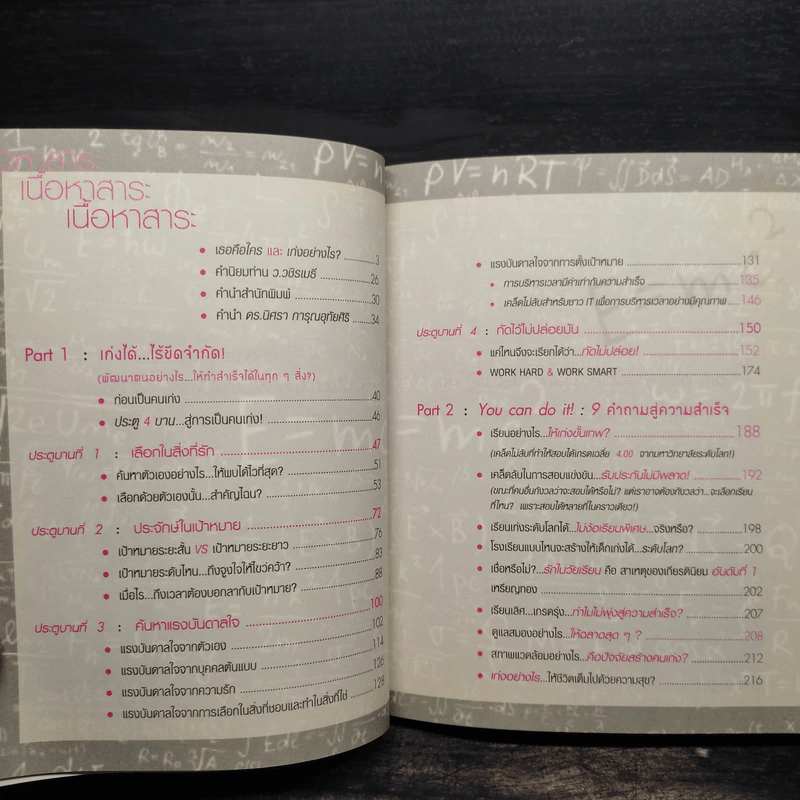 เนื้อหาสาระ
เนื้อหาสาระ
• เธอคือใคร และ เก่งอย่างไร? 3
• คำนิยมท่าน ว.วชิรเมธี 26
• คำนำสำนักพิมพ์ 30
• คำนำ ดร.นิศรา การุณอุทัยศิริ 34
Part 1 : เก่งได้...ไร้ขีดจำกัด!
(พัฒนาตนอย่างไร...ให้ทำสำเร็จได้ในทุก ๆ สิ่ง?)
• ก่อนเป็นคนเก่ง 40
• ประตู 4 บาน...สู่การเป็นคนเก่ง! 46
ประตูบานที่ 1 : เลือกในสิ่งที่รัก 47
• ค้นหาตัวเองอย่างไร...ให้พบได้ไวที่สุด? 51
• เลือกด้วยตัวเองนั้น...สำคัญไฉน? 53
ประตูบานที่ 2 : ประจักษ์ในเป้าหมาย 72
• เป้าหมายระยะสั้น VS เป้าหมายระยะยาว 76
• เป้าหมายระดับไหน...ถึงจูงใจให้ไขว่คว้า? 83
• เมื่อไร...ถึงเวลาต้องบอกลากับเป้าหมาย? 88
ประตูบานที่ 3 : ค้นหาแรงบันดาลใจ 100
• แรงบันดาลใจจากตัวเอง 102
• แรงบันดาลใจจากบุคคลต้นแบบ 114
• แรงบันดาลใจจากความรัก 126
• แรงบันดาลใจจากการเลือกในสิ่งที่ชอบและทำในสิ่งที่ใช่ 128
PV=nRT
• แรงบันดาลใจจากการตั้งเป้าหมาย 131
• การบริหารเวลามีค่าเท่ากับความสำเร็จ 135
• เคล็ดไม่ลับสำหรับชาว IT เพื่อการบริหารเวลาอย่างมีคุณภาพ 146
ประตูบานที่ 4 : กัดไว้ไม่ปล่อยมัน 150
• แค่ไหนจึงจะเรียกได้ว่า...กัดไม่ปล่อย! 152
• WORK HARD & WORK SMART 174
Part 2 : You can do it! : 9 คำถามสู่ความสำเร็จ
• เรียนอย่างไร...ให้เก่งขั้นเทพ? 188
(เคล็ดไม่ลับที่ทำให้สอบได้เกรดเฉลี่ย 4.00 จากมหาวิทยาลัยระดับโลก!)
• เคล็ดลับในการสอบแข่งขัน...รับประกันไม่มีพลาด! 192
(ขณะที่คนอื่นกังวลว่าจะสอบได้หรือไม่? แต่เราอาจต้องกังวลว่า...จะเลือกเรียน
ที่ไหน? เพราะสอบได้หลายที่ในคราวเดียว!)
• เรียนเก่งระดับโลกได้...ไม่ง้อเรียนพิเศษ...จริงหรือ? 198
• โรงเรียนแบบไหนจะสร้างให้เด็กเก่งได้...ระดับโลก? 200
• เชื่อหรือไม่?...รักในวัยเรียน คือ สาเหตุของเกียรตินิยม อันดับที่ 1
เหรียญทอง 202
• เรียนเลิศ...เกรดรุ่ง...ทำไมไม่พุ่งสู่ความสำเร็จ? 207
• ดูแลสมองอย่างไร...ให้ฉลาดสุด ๆ ? 208
• สภาพแวดล้อมอย่างไร...คือปัจจัยสร้างคนเก่ง? 212
• เก่งอย่างไร...ให้ชีวิตเต็มไปด้วยความสุข? 216